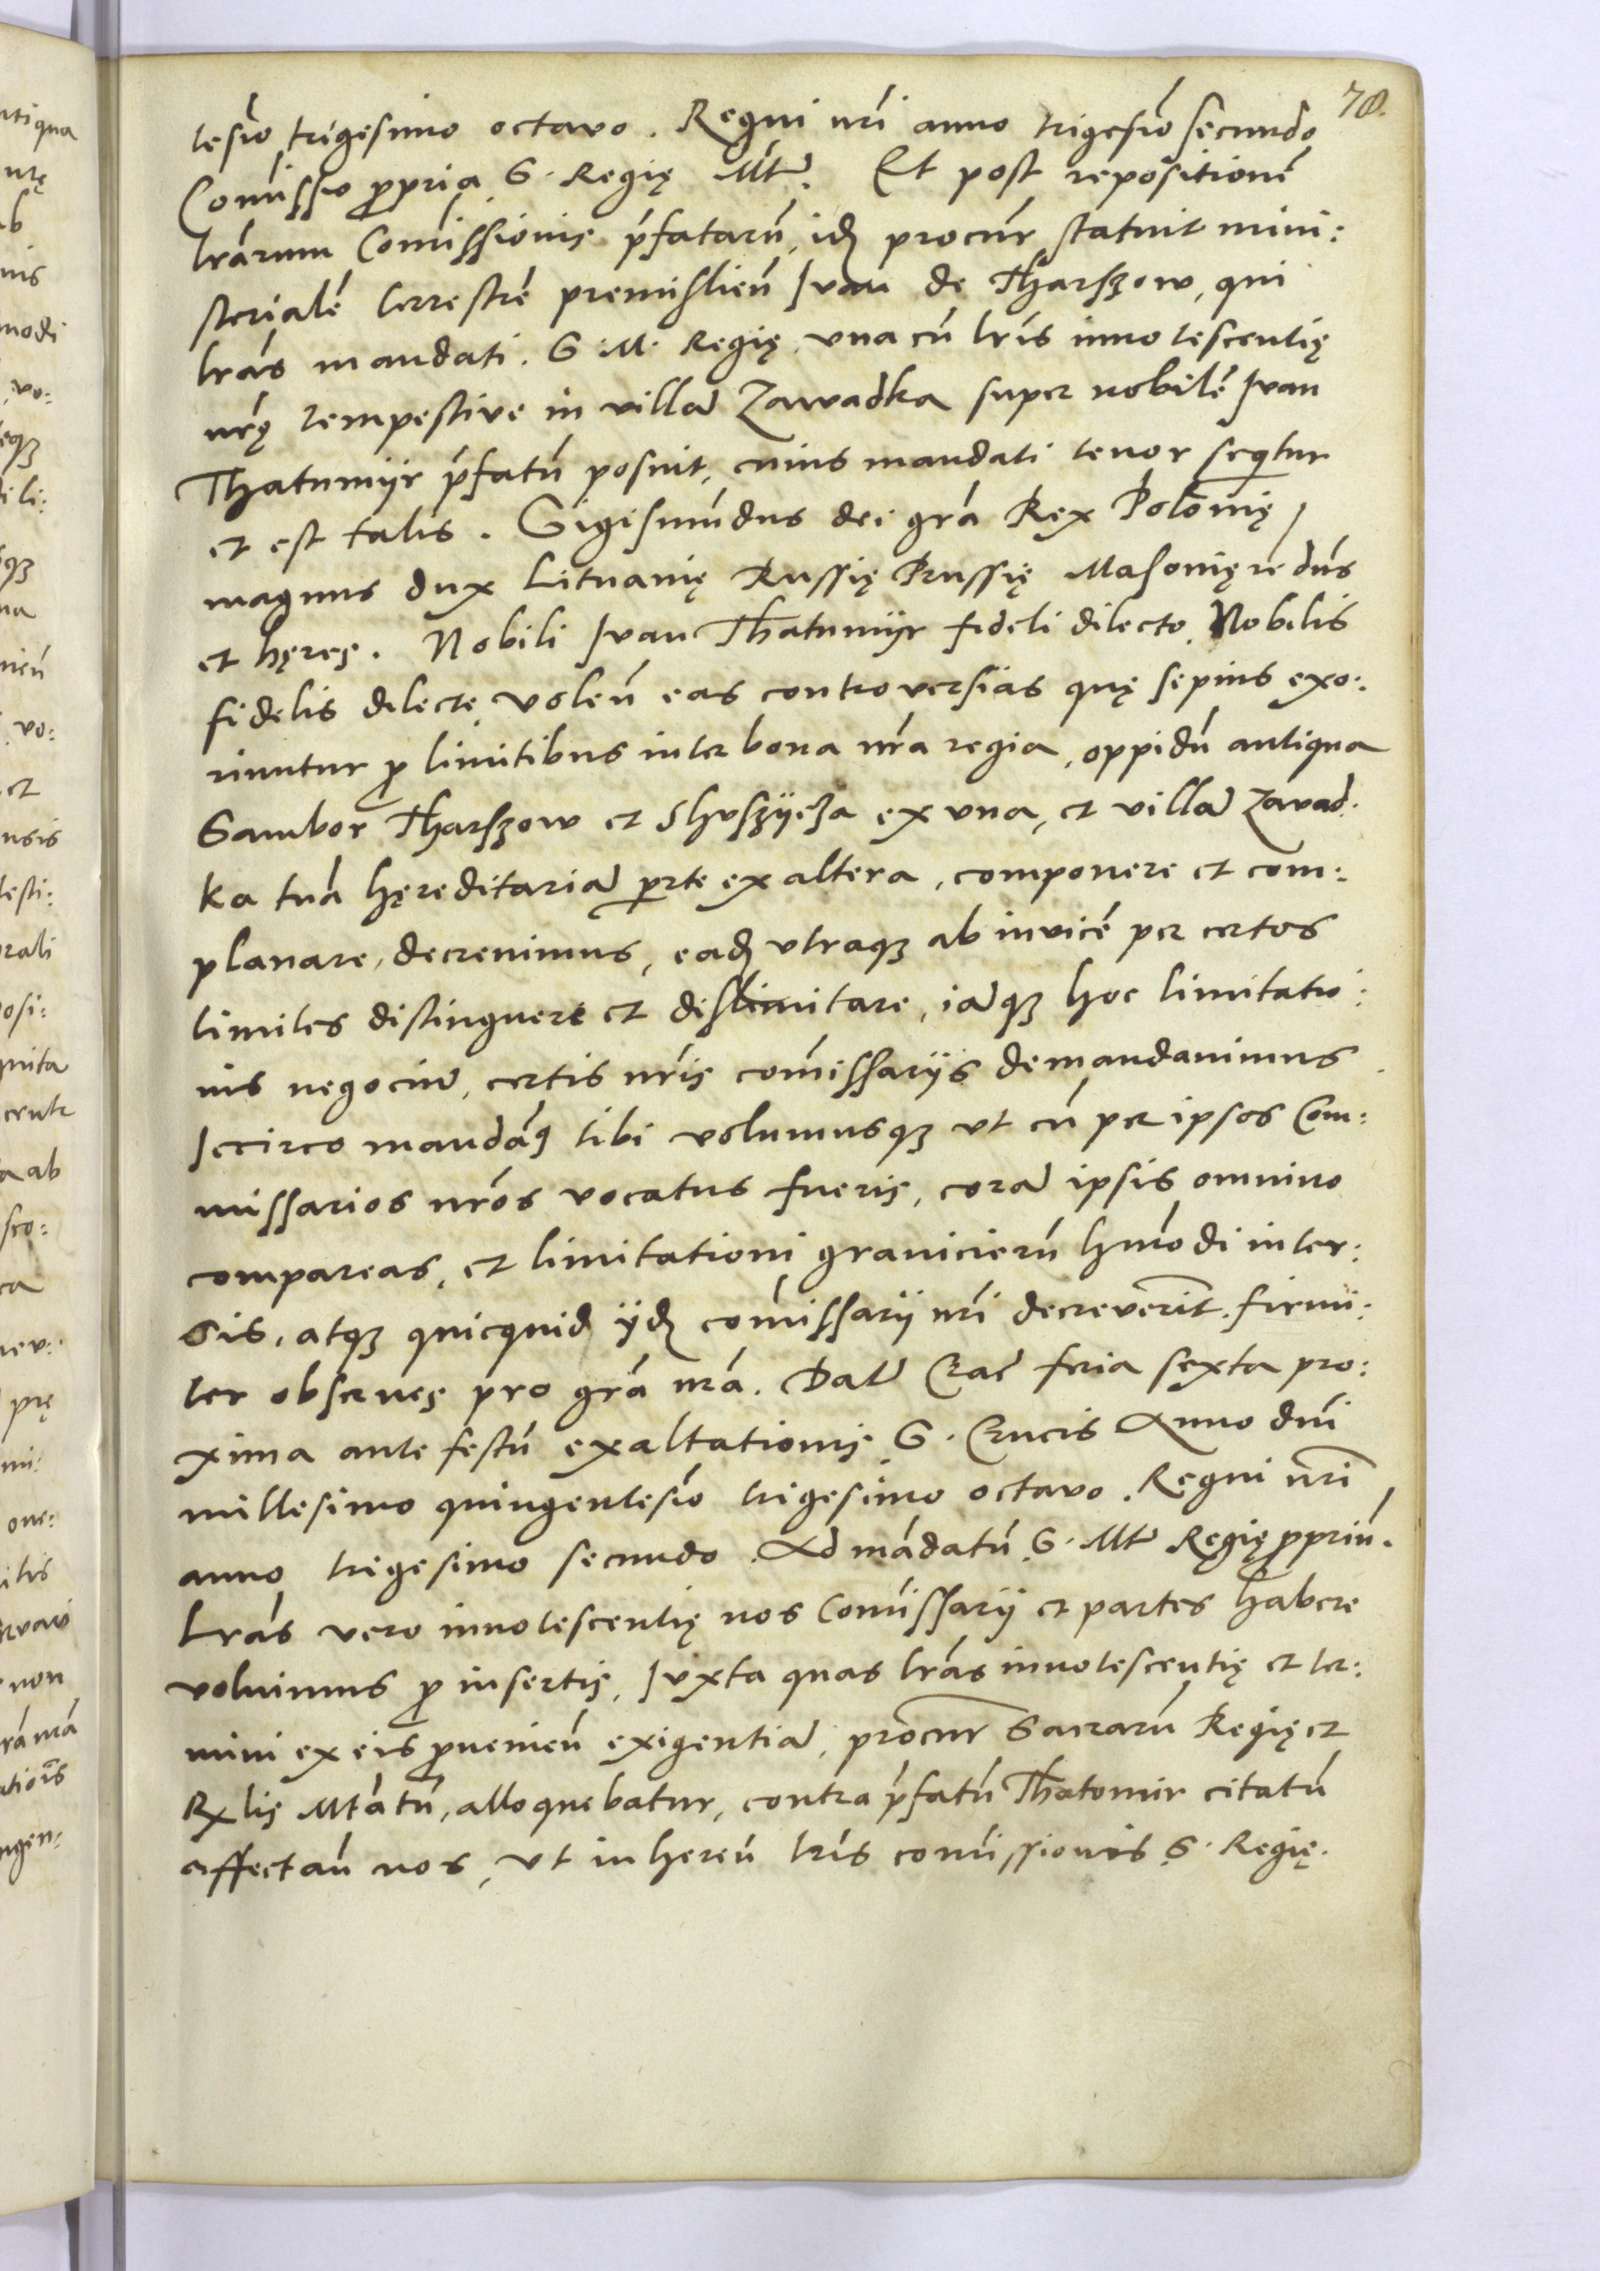 78.
tesiō trigesimo octavo. Regni nr̄i anno trigesiō secundo
Com̄issio ꝓpria S. Regię Mt̄. Et post repositionē
lrārum Com̄issionis p̄fatarū, idꝫ procur̄ statuit mini:
sterialē terrestrē premislien̄ Ivan de Tharszow, qui
lrās mandati. S. M. Regię, vna cū lrīs innotescentię
nrę̄ tempestive in villā Zawadka super nobilē Ivan
Thatumijr p̄fatū posuit, cuius mandati tenor seqitur
et est talis. Sigismūdus dei grā Rex Polonię
magnus dux Lituanię Russię Prussię Masovię re dn̄s
et hęres. Nobili Ivan Thatumijr fideli dilecto, Nobilis
fidelis dilecte, volen̄ eas controversias quę sepius exo:
riuntur ꝓ limitibus inter bona nrā regia, oppidū antiqua
Sambor Tharszow et Shvszijcza ex vna, et villā Zavad.
ka tuā hęreditariā ꝑte ex altera, componere et com:
planare, decrevimus, eadꝫ vtraqꝫ ab invicē per certos
limites distinguere et dislimitare, iāqꝫ hoc limitatio:
nis negociū, certis nrīs com̄issariis demandavimus
Iccirco mandamꝰ tibi volumusqꝫ vt cū per ipsos Com:
missarios nrōs vocatus fueris, corā ipsis omnino
compareas, et limitationi granicierū hmōdi inter:
sis, atqꝫ quicquid ijdꝫ com̄issarij nrī decreverīt firmi:
ter observes pro grā nrā. Datū Crac̄ feria sexta pro:
xima ante festū exaltationis S. Crucis Anno dn̄i
millesimo quingentesiō trigesimo octavo. Regni nrī
anno trigesimo secundo. Ad mādatū S. Mt̄ Regię ꝓpriū.
Lrās vero innotescentię nos Com̄issarij et partes habere
voluimus ꝓ insertis, Iuxta quas lrās innotescentię et ter:
mini ex eis ꝓvenien̄ exigentiā, procur̄ Sacrarū Regię et
Rx̄lis Mtātū, alloquebatur, contra p̄fatū Thatomir citatū
affectan̄ nos, vt inheren̄ lrīs com̄issionis S. Regię.